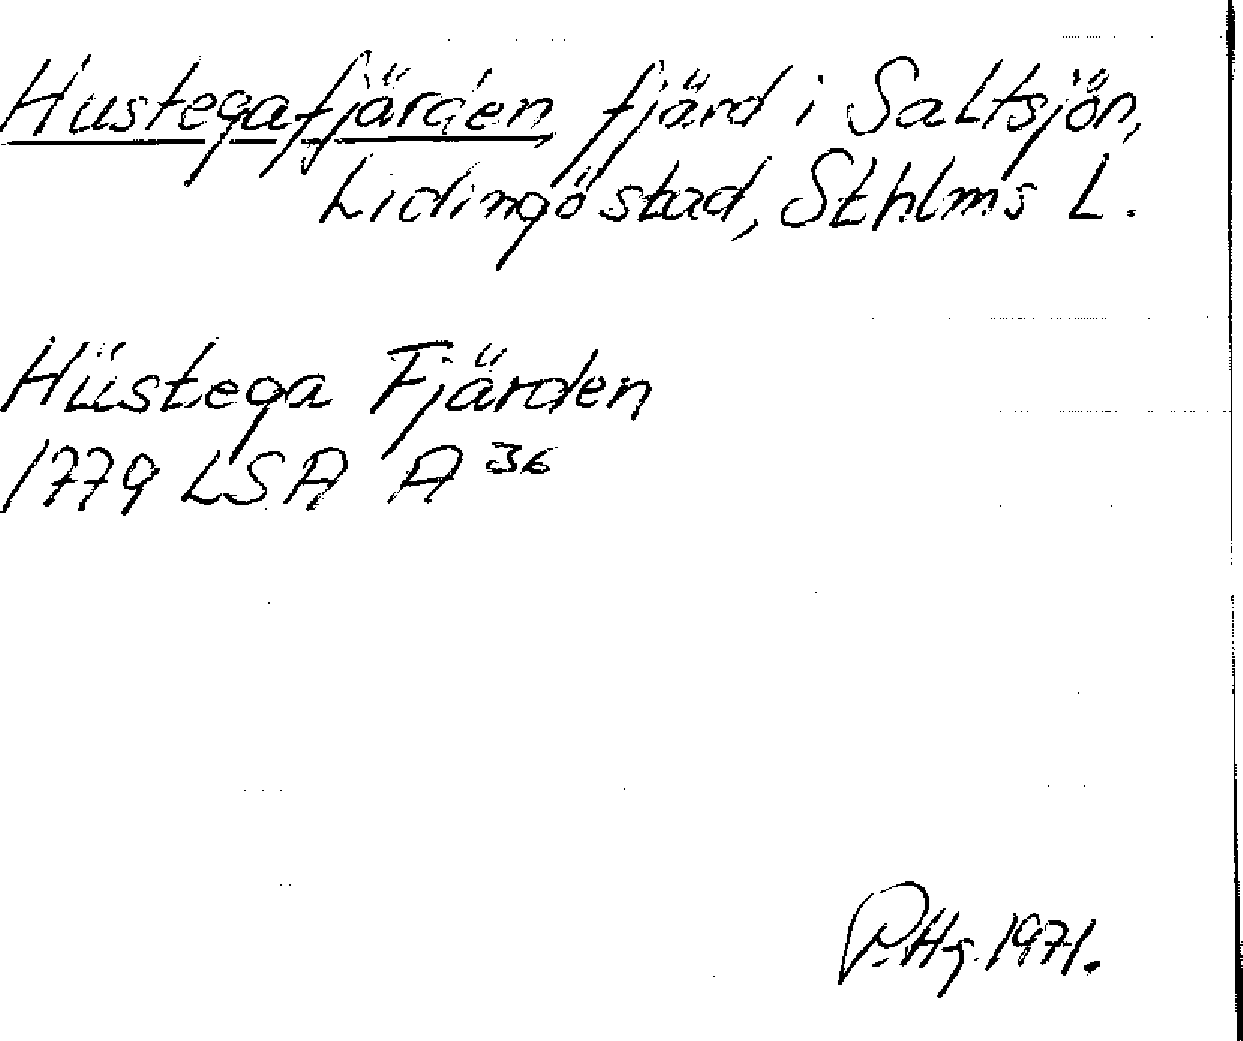 Hustegafjärden, fjärd i Saltsjön,
Lidingö stad, Sthlms L.
Hüstega Fjärden
1779 LSA A 36
P. Hg. 1971.